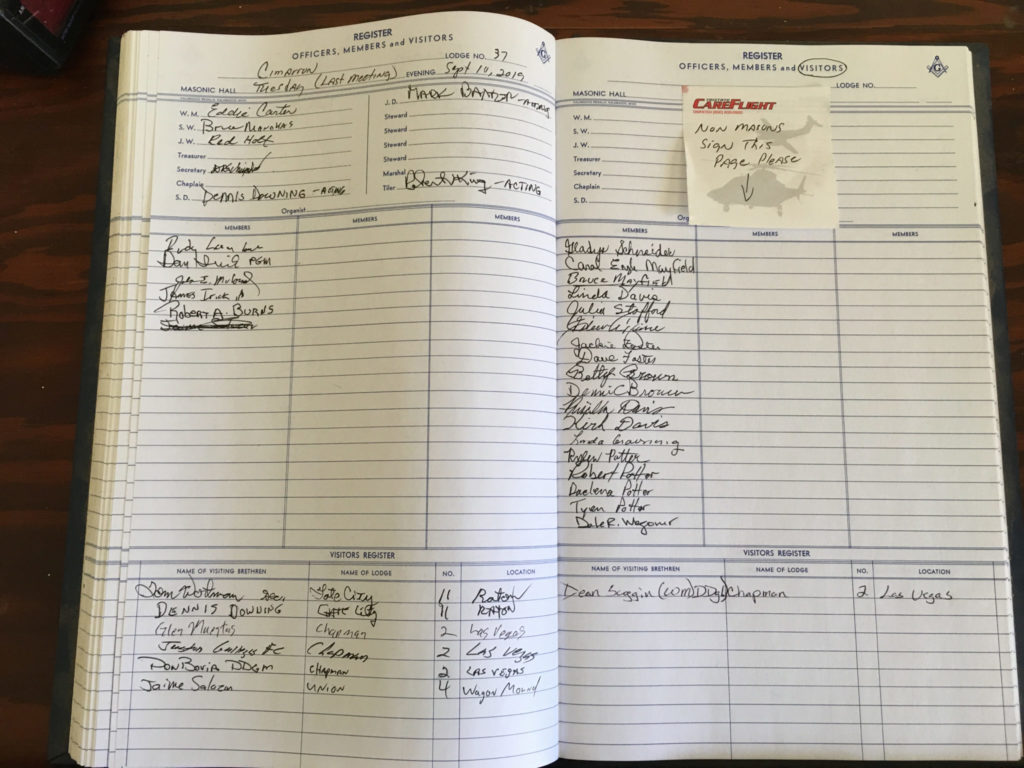 REGISTER
OFFICERS, MEMBERS and VISITORS
Cimarron LODGE NO. 37
MASONIC HALL (Last Meeting) EVENING Sept 10, 2019
W. M. Eddie Carter
S. W. Bruce
J. W. Red Holt
Treasurer
Secretary
Chaplain
S. D. Dennis Downing - Acting
J. D. Mark
Steward
Steward
Steward
Steward
Marshal
Tiler King - ACTING
Organist
MEMBERS MEMBERS MEMBERS
Rudy
Dan PGM
James
Robert A. Burns
VISITORS REGISTER
NAME OF VISITING BRETHREN NAME OF LODGE NO. LOCATION
Tom Gate City 11 Raton
DENNIS DOWNING GATE City 11 RATON
Glen Chapman 2 Las Vegas
Chapman 2 Las Vegas
DON DDGM CHAPMAN 2 LAS VEGAS
Jaime Salazar UNION 4 Wagon Mound
REGISTER
OFFICERS, MEMBERS and VISITORS
LODGE NO.
MASONIC HALL
W. M.
S. W.
J. W.
Treasurer
Secretary
Chaplain
S. D.
CAREFLIGHT
NON MASONS
SIGN THIS
PAGE PLEASE
MEMBERS MEMBERS MEMBERS
Gladys Schneider
Carol Engle Mayfield
Bruce Mayfield
Linda Davis
Julia Stafford
Jackie Foster
Dave Foster
Betty Brown
Dennis Brown
Davis
Kirk Davis
Linda
Potter
Robert Potter
Daelena Potter
Tyen Potter
Dale R. Wagoner
VISITORS REGISTER
NAME OF VISITING BRETHREN NAME OF LODGE NO. LOCATION
Dean Chapman 2 Las Vegas